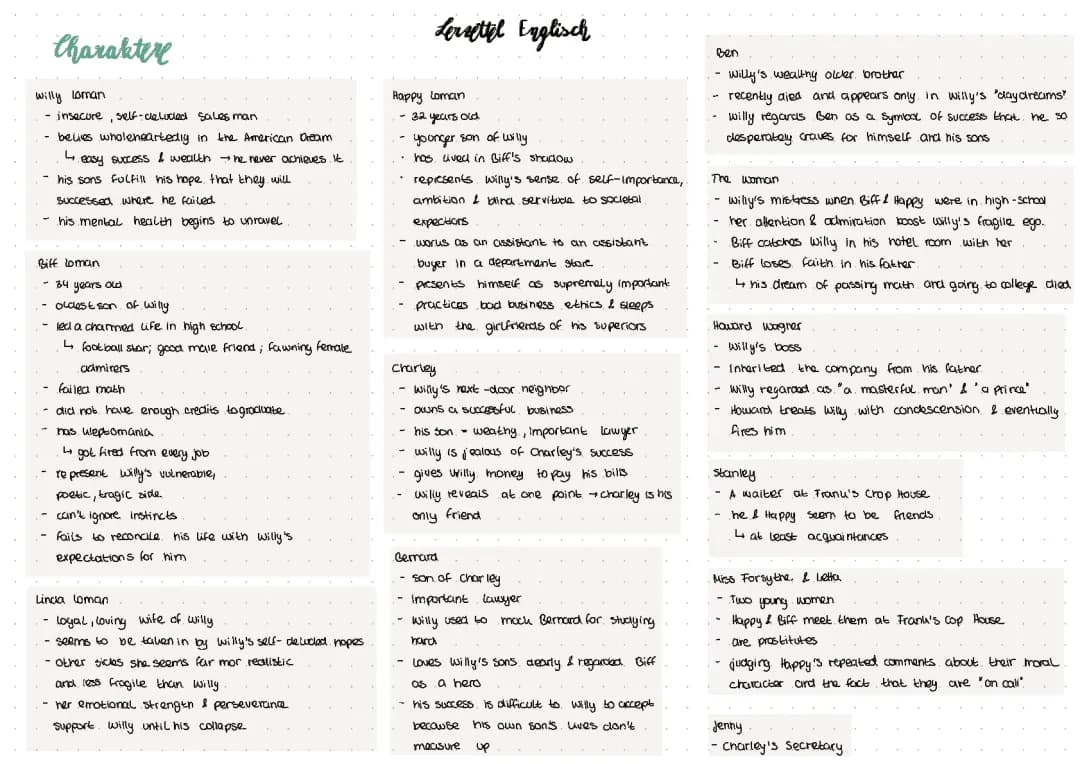 Lernzettel Englisch
Charaktere
Willy Loman
- insecure, self-deluded salesman
- belies wholeheartedly in the American Dream
↳ easy success & wealth → he never achieves it
- his sons fulfill his hope that they will
successed where he failed
- his mental health begins to unravel
Biff Loman
- 34 years old
- oldest son of willy
- led a charmed life in high school
↳ football star; good male friend; fawning female
admirers
- failed math
- did not have enough credits to graduate
- has kleptomania
↳ got fired from every job
- represent Willy's vulnerable,
poetic, tragic side
- can't ignore instincts
- fails to reconcile his life with Willy's
expectations for him
Linda Loman
- loyal, loving wife of willy
- seems to be taken in by willy's self-deluded hopes
- other sides she seems far mor realistic
and less fragile than willy
- her emotional strength & perseverance
support willy until his collapse
Happy Loman
- 32 years old
- younger son of willy
- has lived in Biff's shadow
- represents Willy's sense of self-importance,
ambition & blind servitude to societal
expections
- works as an assistant to an assistant
buyer in a department store
- presents himself as supremely important
- practices bad business ethics & sleeps
with the girlfriends of his superiors
Charley
- willy's next-door neighbor
- owns a successful business
- his son = weathy, important lawyer
- willy is jealous of Charley's success
- gives willy money to pay his bills
- willy reveals at one point → charley is his
only friend
Bernard
- son of Charley
- Important lawyer
- Willy used to mock Bernard for studying
hard
- loves Willy's sons dearly & regarded Biff
as a hero
- his success is difficult to willy to accept
because his own son's lives don't
measure up
Ben
- willy's wealthy older brother
- recently died and appears only in Willy's "daydreams"
- willy regards Ben as a symbol of success that he so
desperately craves for himself and his sons
The woman
- willy's mistress when Biff & Happy were in high-school
- her attention & admiration boost willy's fragile ego.
- Biff catches willy in his hotel room with her
- Biff loses faith in his father
↳ his dream of passing math and going to college died
Howard Wagner
- Willy's boss
- Inherited the company from his father
- willy regarded as "a masterful man" & "a prince"
- Howard treats willy with condescension & eventually
fires him
Stanley
- A waiter at Frank's Chop House
- he & Happy seem to be friends
↳ at least acquaintances
Miss Forsythe & Letta
- Two young women
- Happy & Biff meet them at Frank's Cop House
- are prostitutes
- judging Happy's repeated comments about their moral
character and the fact that they are "on call"
Jenny
- Charley's Secretary